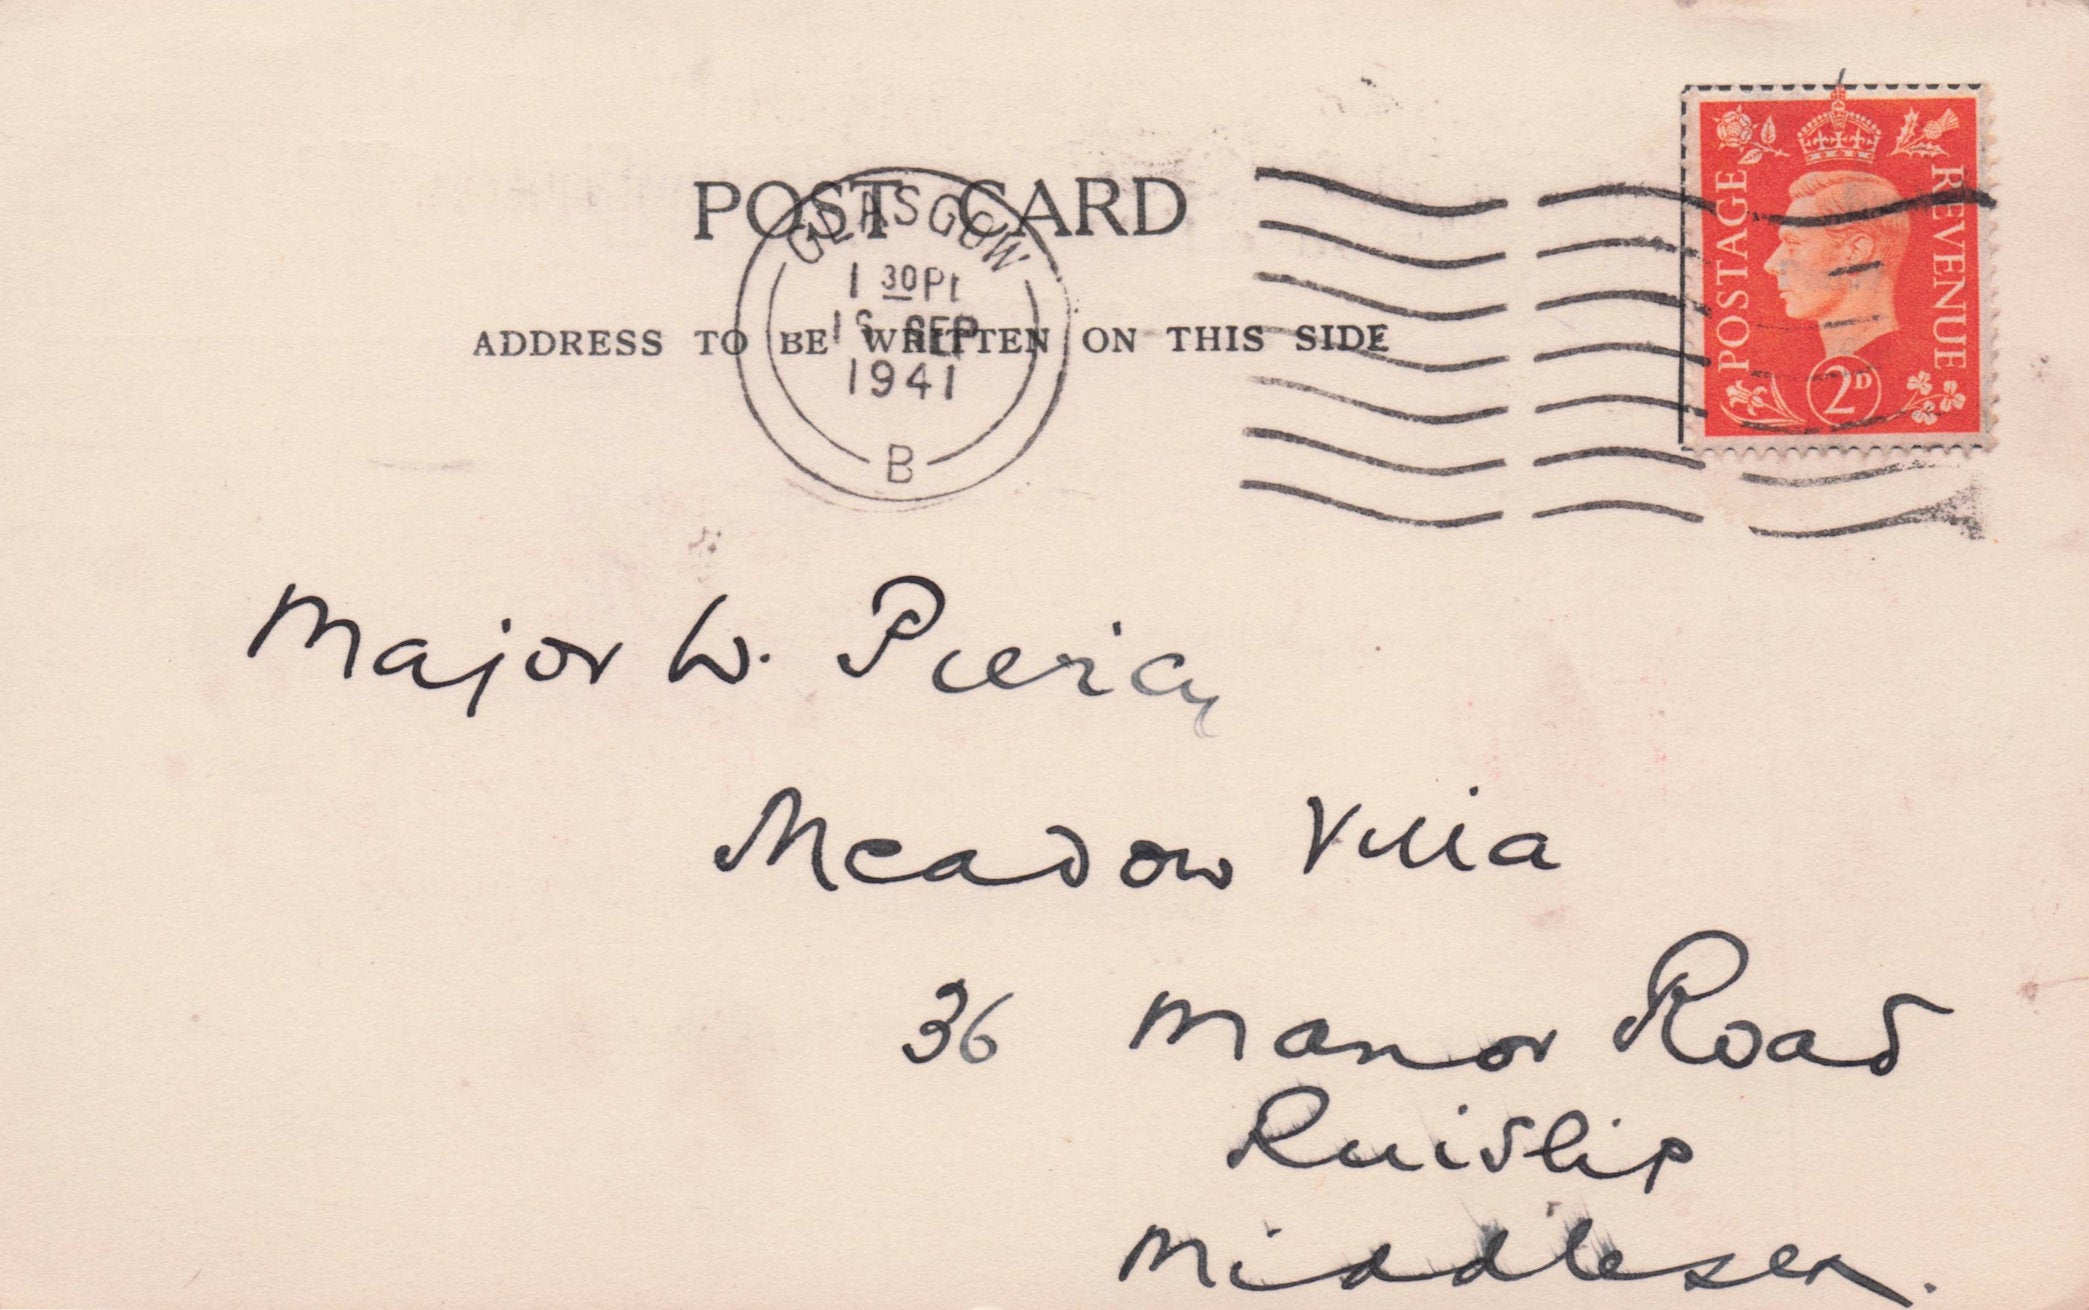 POST CARD
ADDRESS TO BE WRITTEN ON THIS SIDE
GLASGOW
1 30 P
SEP
1941
B
POSTAGE
REVENUE
2D
Major W. Piercy
Meadow Villa
36 Manor Road
Ruislip
Middlesex.